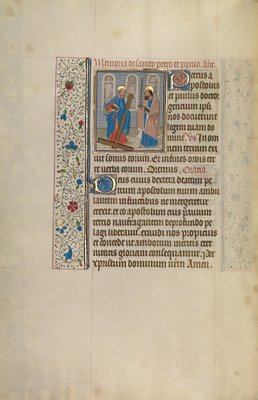 Memoria de sancto petro et paulo. Añt.
Petrus a
postolus
et paulus doctor
gentium ipsi
nos docuerunt
legem tuam do
mine. Vs. In om
nem terram exi
uit sonus eorum. Et in fines orbis ter
re verba eorum. Oremus. Oratio.
Deus cuius dextera beatum pe
trum apostolum tuum ambu
lantem in fluctibus ne mergeretur
erexit et co apostolum eius paulum
tercio naufragantem de profundo pe
lagi liberauit. exaudi nos propicius
et concede vt amborum meritis eter
nitatis gloriam consequamur. Per
xpristum dominum nrm Amen.